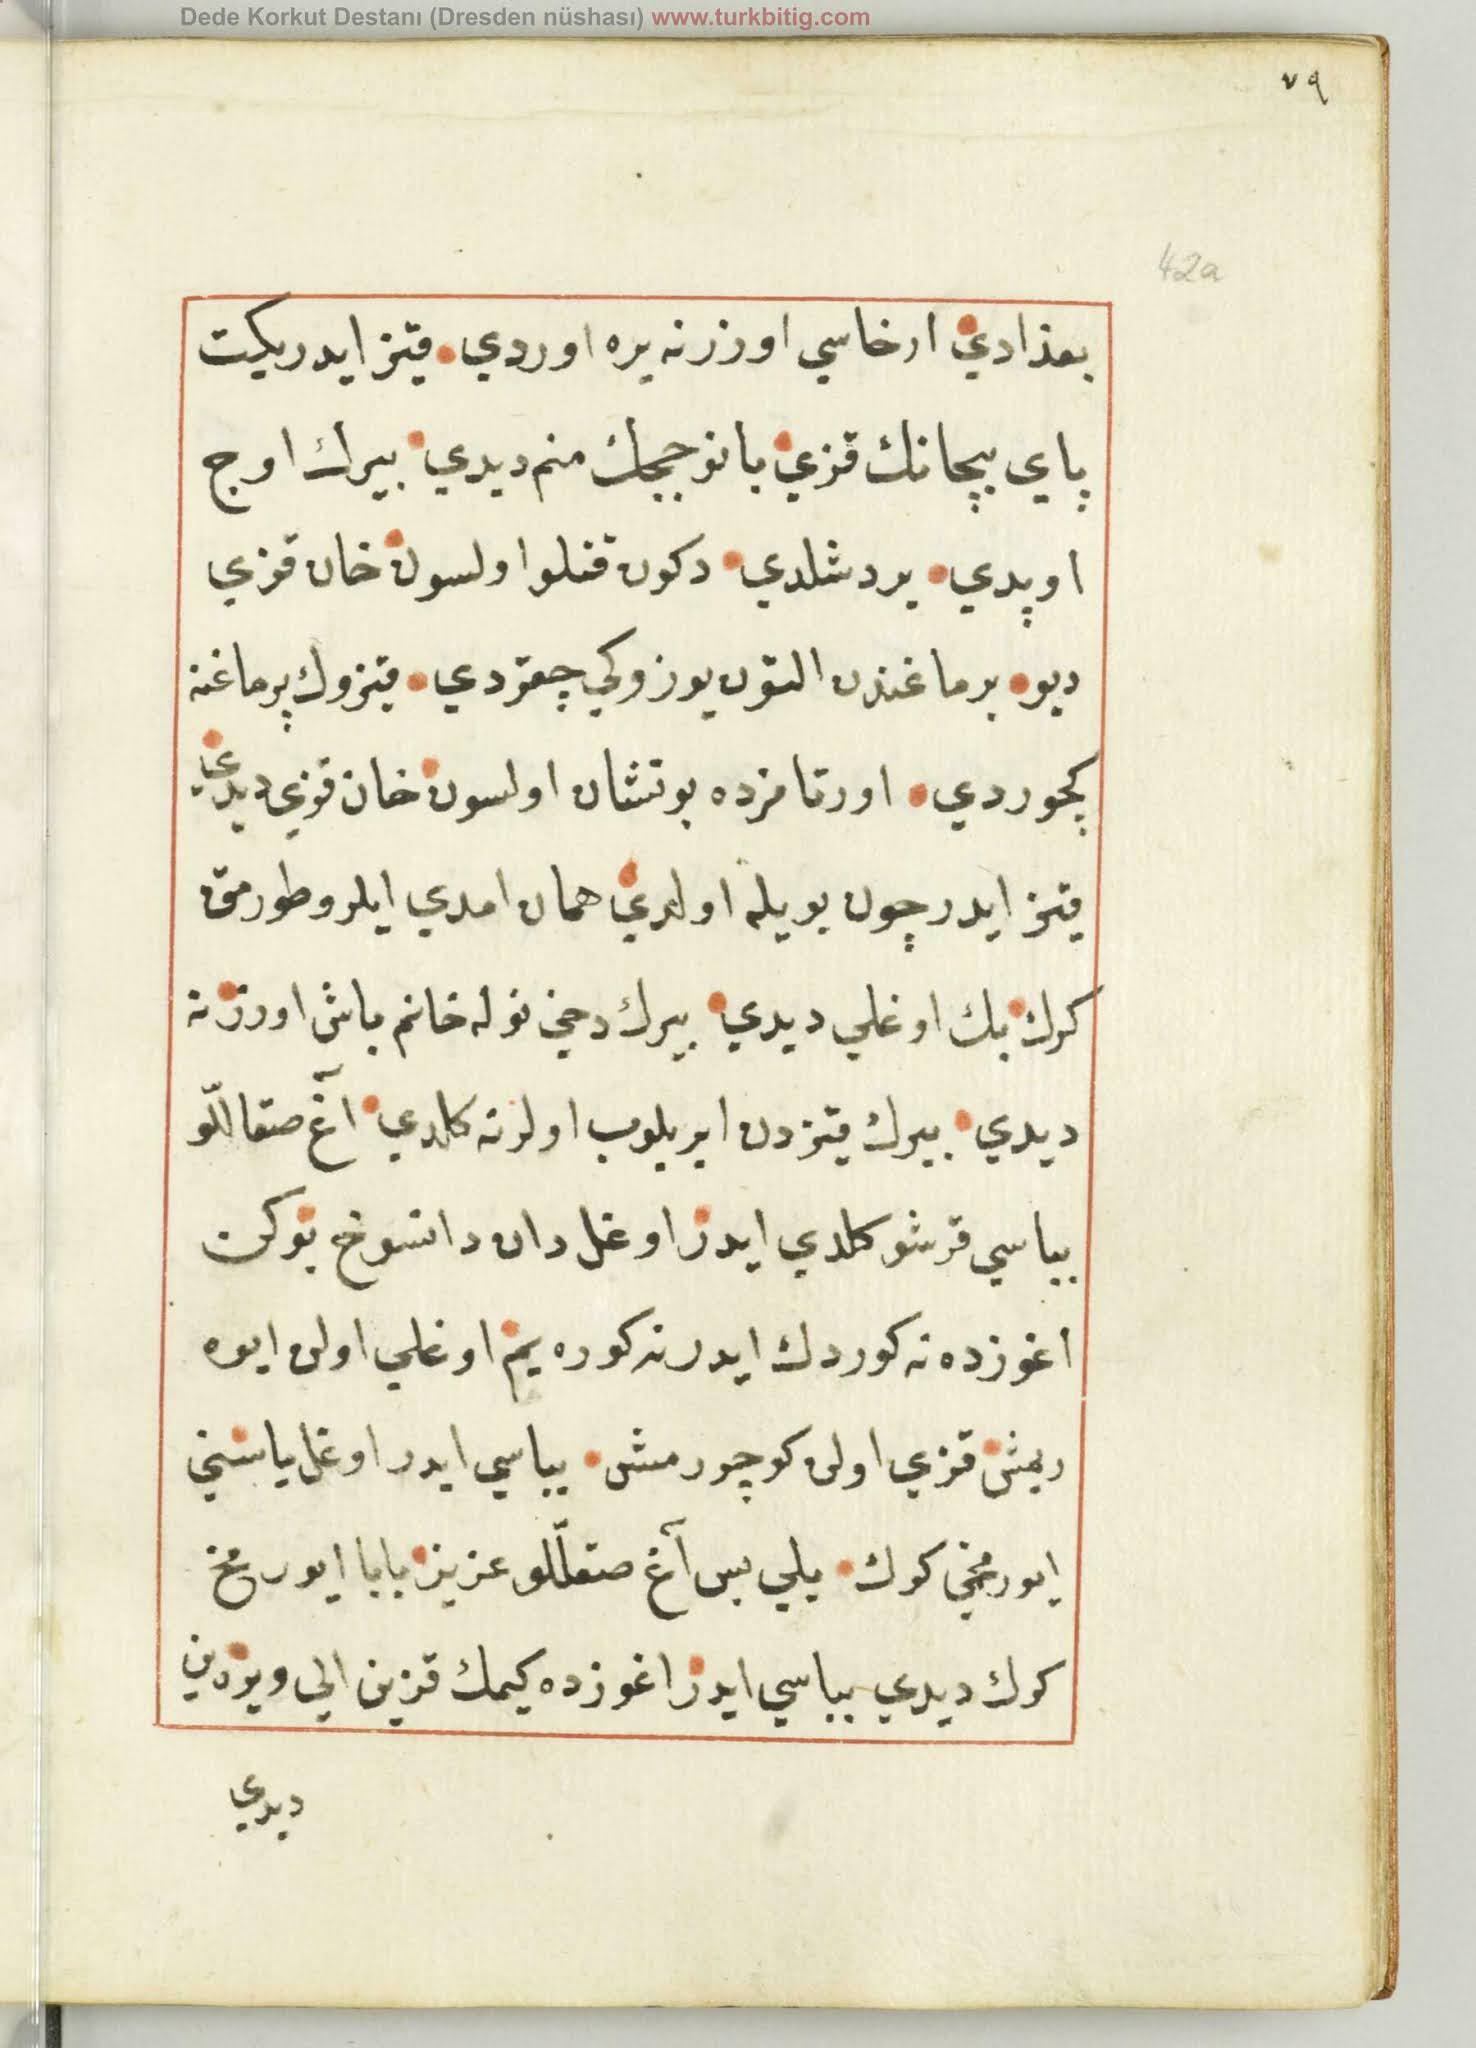 Dede Korkut Destanı (Dresden nüshası) www.turkbitig.com
٧٩
42a
بغذادي ارخاسي اوزرنه يره اوردي قيز ايدر يكت
پاي بيچانك قزي بانو چيچك منم ديدي بيرك اوچ
اوپدي بر دشلدي دكون قتلو اولسون خان قزي
ديو برماغندن التون يوزوكي چقردي قيزوك پرماغنه
كچوردي اورتامزده بو نشان اولسون خان قزي ديدي
قيز ايدر چون بويله اولدي همان امدي ايلرو طورمق
كرك بك اوغلي ديدي بيرك دخي نوله خانم باش اوزرنه
ديدي بيرك قيزدن ايريلوب اولرنه كلدي آغ صقاللّو
بباسي قرشو كلدي ايدر اوغل دان دانسوخ بو كن
اغوزده نه كوردك ايدر نه كوره يم اوغلي اولن ايوه
رمش قزي اولن كوچورمش بباسي ايدر اوغل ياسني
ايورمخي كرك يلي بس آغ صقللّو عزيز بابا ايورمخ
كرك ديدي بباسي ايدر اغوزده كيمك قزين الي ويره ين
ديدي